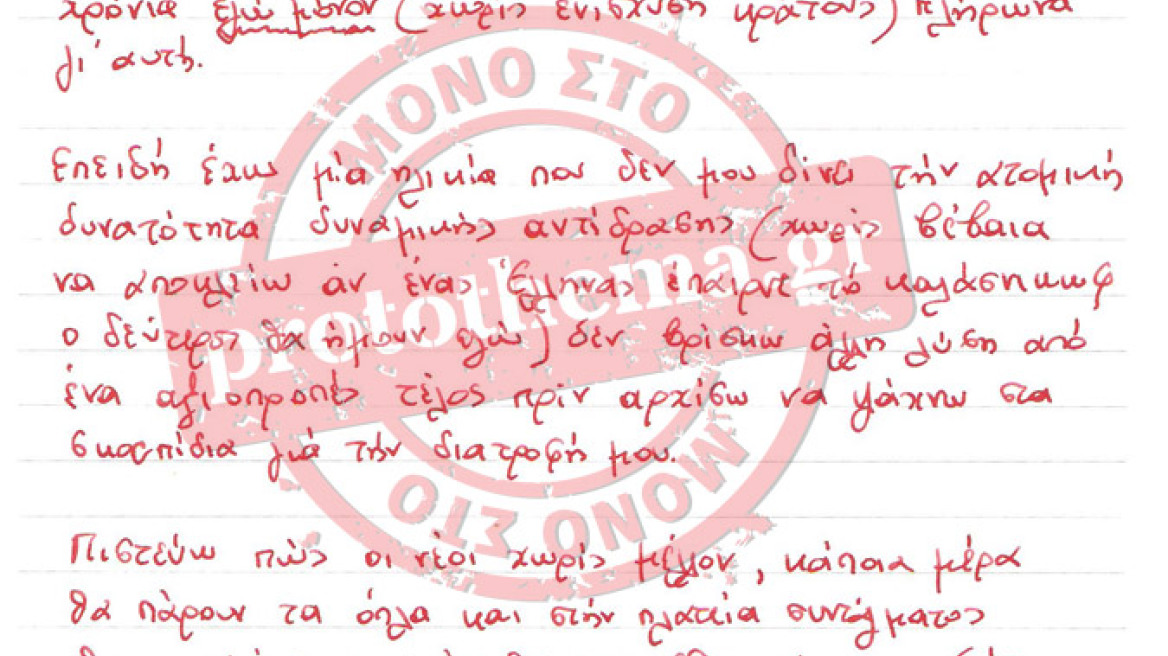 χρόνια εγώ μόνον (χωρίς ενίσχυση κράτους) πλήρωνα
γι' αυτή.
ΜΟΝΟ ΣΤΟ
Επειδή έχω μία ηλικία που δεν μου δίνει τήν ατομική
δυνατότητα δυναμικής αντίδρασης (χωρίς βέβαια
να αποκλείω άν ένας Έλληνας έπαιρνε τό καλάσηκωφ
ο δεύτερος θα ήμουν εγώ) δέν βρίσκω άλλη λύση από
protothema.gr
ένα αξιοπρεπές τέλος πρίν αρχίσω νά ψάχνω στα
σκουπίδια γιά τήν διατροφή μου.
ΜΟΝΟ ΣΤΟ
Πιστεύω πώς οι νέοι χωρίς μέλλον, κάποια μέρα
θα πάρουν τα όπλα και στήν πλατεία συντάγματος